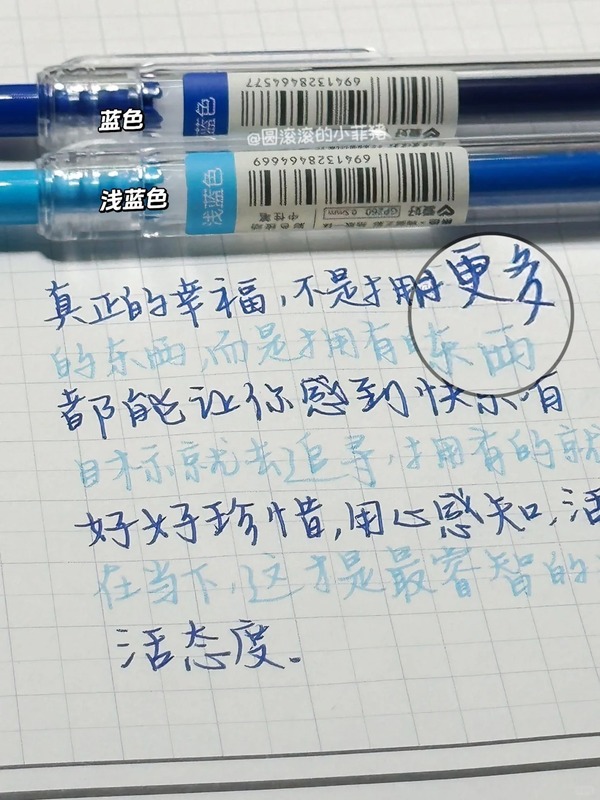 蓝色
蓝色
6941328464577
@圆滚滚的小菲
浅蓝色
浅蓝色
6941328464669
爱好
GP260 0.5mm
中性笔
真正的幸福,不是拥用更多
的东西,而是拥有的东西
都能让你感到快乐有
目标就去追寻,拥有的就
好好珍惜,用心感知,活
在当下,这才是最睿智的
活态度.